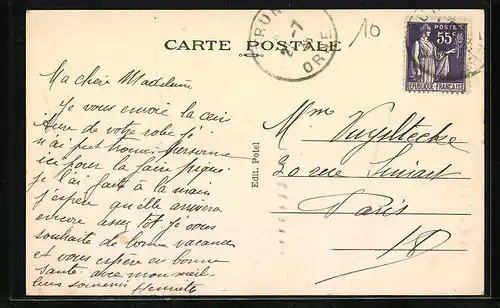 CARTE POSTALE
10
ORNE
POSTES
55c
REPUBLIQUE FRANCAISE
Ma chère Madeleine
Je vous envoie la cein
ture de votre robe j'
n'ai peut trouvé personne
ici pour la faire piqué.
je l'ai fait à la main
j'espère qu'elle arrivera
encore assez tôt je vous
souhaite de bonne vacances
et vous espère en bonne
santé. avec mon meil-
leur souvenir Henriette
Edit. Potel
Mme Vuylsteche
30 rue Simart
Paris
18